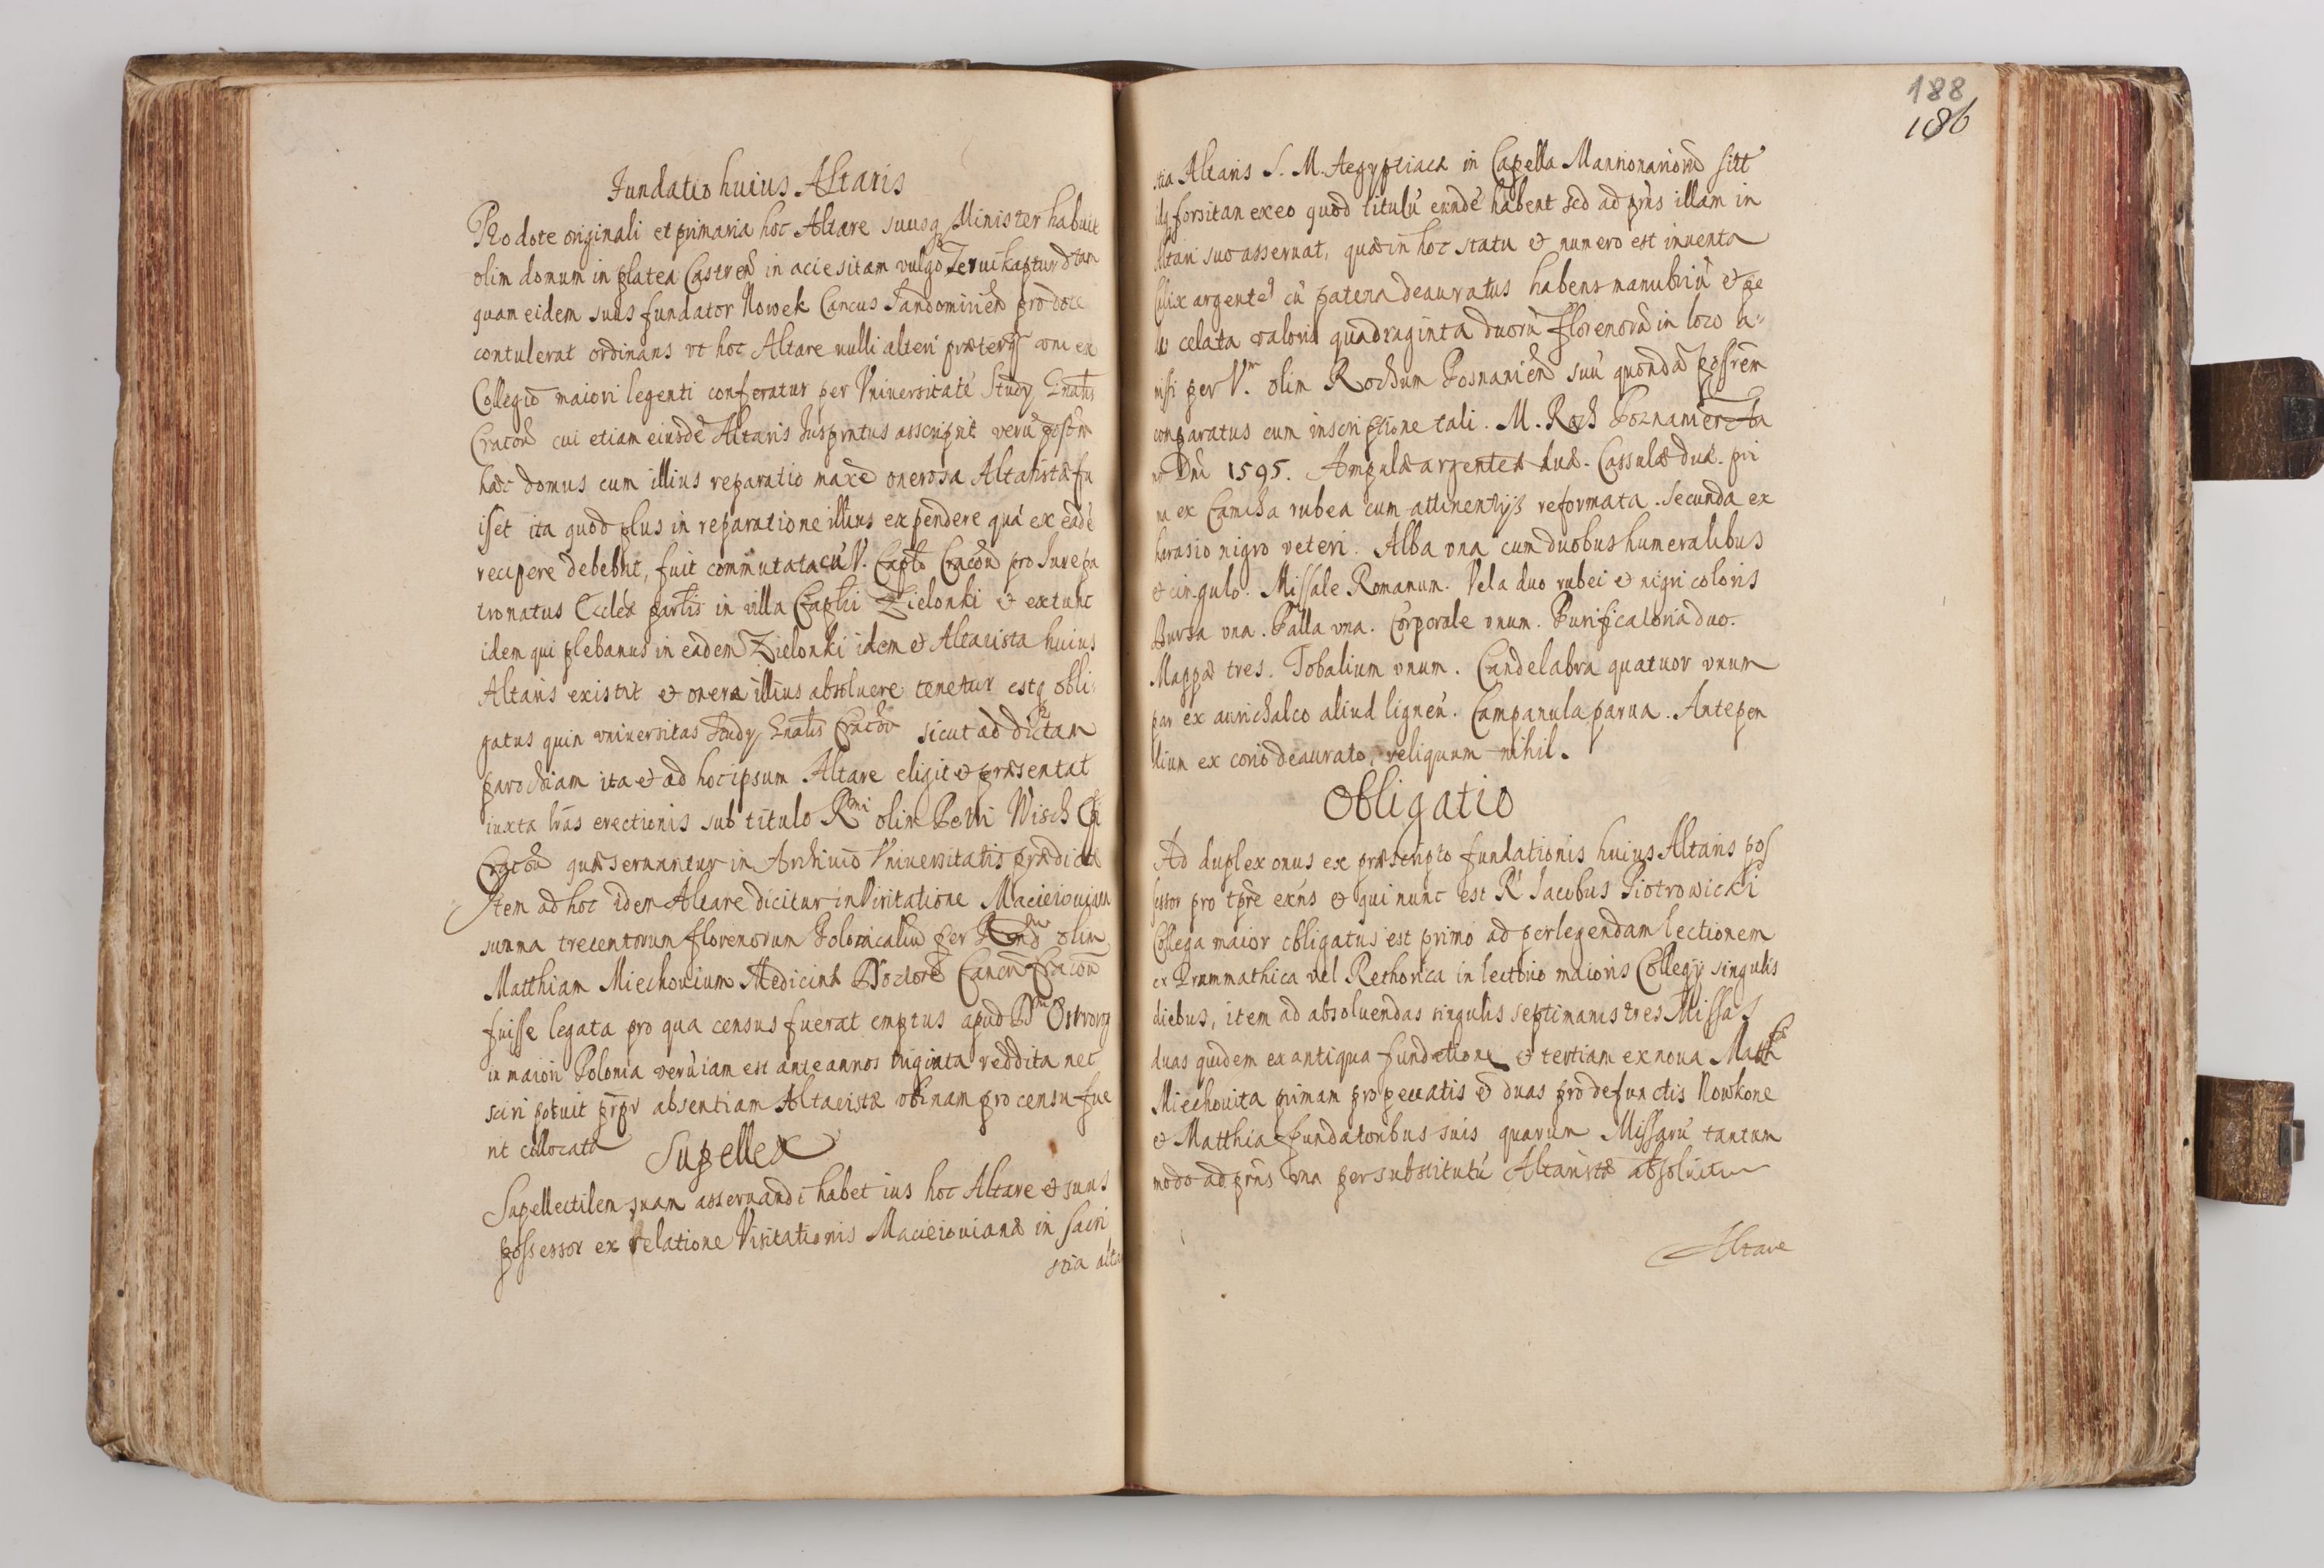 Fundatio huius Altaris
Pro dote originali et primaria hoc Altare suusq Minister habuit
olim domum in platea Castren̄ in acie sitam vulgo
quam eidem suus fundator Nowek Cancus Sandomirien̄ pro dote
contulerat ordinans vt hoc Altare nulli alteri præterq̃ vni ex
Collegio maiori legenti conferatur per Vniuersitatē Study Gnalis
Cracoū cui etiam eiusdē Altaris Iusprntus asscripsit verū postm̃
hæc domus cum illius reparatio maxē onerosa Altaristæ fu
isset ita quod plus in reparatione illius expendere quā ex eadē
recipere debebat, fuit commutata cū V. Caplo Cracoū pro Iure pa
tronatus Ecclēæ parlis in villa Zielonki & extunc
idem qui plebanus in eadem Zielonki idem & Altarista huius
Altaris existit & onera illius absoluere tenetur estq obli
gatus quin vniuersitas Study Gnalis Cracoū sicut ad dictam
parochiam ita & ad hoc ipsum Altare eligit & præsentat
iuxta lrās erectionis sub titulo Rmi olim Petri Wisch Epi
Cracoū quæ seruantur in Archiuio Vniuersitatis prædictæ
Item ad hoc idem Altare dicitur in Visitatione Macieiouiana
summa trecentorum florenorum Polonicaliū per olim
Matthiam Miechouium Medicinæ Doctorē Cancū Cracoū
fuisse legata pro qua census fuerat emptus apud
in maiori Polonia verū iam est ante annos triginta reddita nec
sciri potuit pr̄pr absentiam Altaristæ vbinam pro censu fue
rit collocata
Supellex
Supellectilem suam asseruandi habet ius hoc Altare & suus
possessor ex relatione Visitationis Macieiouianæ in sacri
stia alta
188
186
stia Altaris S. M. Aegyptiacæ in Capella Mansionarioru sitt
forsitan ex eo quod titulū eundē habent sed ad prns illam in
Altari suo asseruat, quæ in hoc statu & numero est inuenta
Calix argente9 cū patena deauratus habens manubriū & pe
celata valoris quadraginta duorū florenorū in loco a-
misi per Vm. olim Rochum Posnanien̄ suū quondā possrēm
comparatus cum inscriptione tali. M. Roch
no Dnī 1595. Ampulæ argenteæ duæ. Cassulæ duæ. pri
ma ex Camcha rubea cum attinentijs reformata. Secunda ex
harasio nigro veteri. Alba vna cum duobus humeralibus
& cingulo. Missale Romanum. Vela duo rubei & nigri coloris
Bursa vna. Palla vna. Corporale vnum. Purificatoria duo.
Mappæ tres. Tobalium vnum. Candelabra quatuor vnum
par ex aurichalco aliud ligneū. Campanula parua. Antepen
dium ex corio deaurato, reliquum nihil.
Obligatio
Ad duplex onus ex præscripto fundationis huius Altaris pos
sessor pro tpre exns & qui nunc est R. Iacobus Piotrowicki
Collega maior obligatus est primo ad perlegendam lectionem
ex Grammathica vel Rethorica in lectorio maioris Collegij singulis
diebus, item ad absoluendas singulis septimanis tres Missas
duas quidem ex antiqua fundatione & tertiam ex noua Matthæ
Miechouita primam pro peccatis & duas pro defunctis Nowkone
& Matthia fundatoribus suis quarum Missarū tantum
modo ad prns vna per substitutū Altaristæ absoluitur
Altare